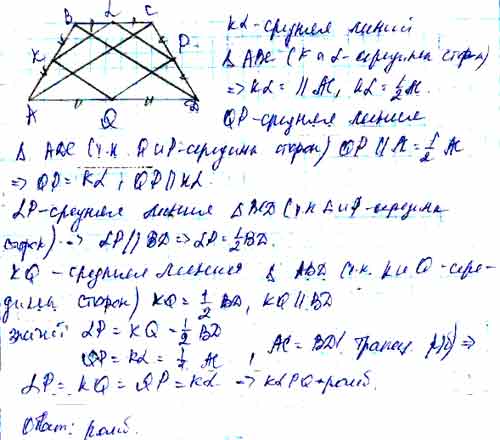 B L C
K P
A Q D
KL - средняя линия
Δ ABC (K и L - середины сторон)
=> KL = || AC, KL = 1/2 AC
QP - средняя линия
Δ ADC (т.к. Q и P - середина сторон) QP || AC = 1/2 AC
=> QP = KL; QP || KL
LP - средняя линия Δ BCD (т.к L и P - середина
сторон) => LP || BD => LP = 1/2 BD.
KQ - средняя линия Δ ABD (т.к. K и Q - сере-
дина сторон) KQ = 1/2 BD, KQ || BD
значит LP = KQ = 1/2 BD
QP = KL = 1/2 AC, AC = BD ( трапец. р/б) =>
LP = KQ = QP = KL => KLPQ - ромб.
Ответ: ромб.